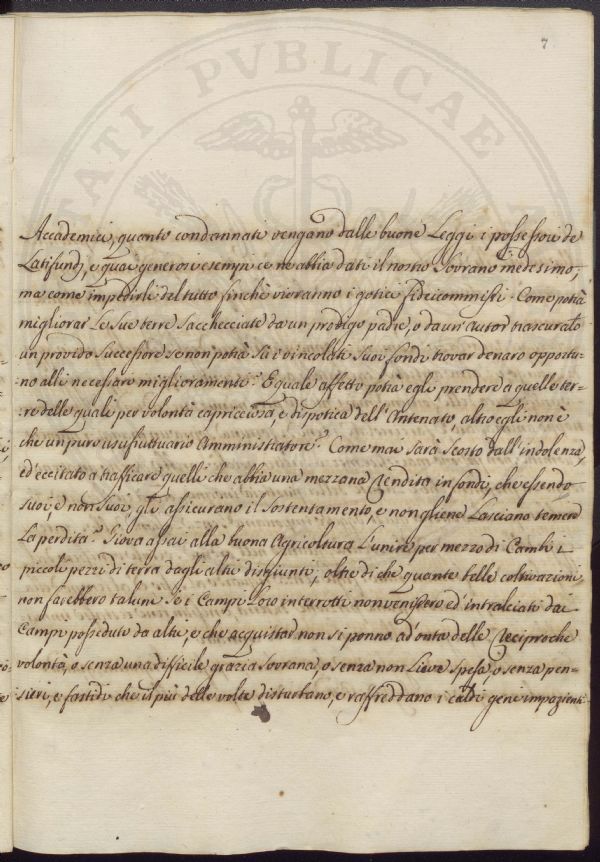 7
TATI PVBLICAE
Accademici, quanto condannati vengano dalle buone Leggi i possessori de
Latifundj, e quai generosi esempi ce ne abbia dati il nostro Sovrano medesimo;
ma come impedirli del tutto finchè vivranno i gotici Fideicommissi. Come potrà
migliorar Le sue terre saccheggiate da un prodigo padre, o da un Autor trascurato
un provido successore se non potrà sù i vincolati suoi fondi trovar denaro opportu-
no alli necessari miglioramenti? E quale affetto potrà egli prendere a quelle ter-
re delle quali per volontà capricciosa, e dispotica dell'Antenato, altro egli non è
che un puro usufruttuario Amministratore? Come mai sarà scosso dall'indolenza,
ed'eccitato a trafficare quelli che abbia una mezzana Rendita in fondi, che essendo
suoi, e non suoi gli assicurano il sostentamento, e non gliene Lasciano temere
La perdita? Giova assai alla buona Agricoltura L'unire per mezzo di Cambi i
piccoli pezzi di terra dagli altri disgiunti, oltre di che quante belle coltivazioni
non farebbero taluni se i Campi Loro interrotti non venissero ed'intralciati dai
Campi posseduti da altri, e che acquistar non si ponno ad'onta delle Reciproche
volontà, o senza una difficile grazia sovrana, o senza non Lieve spesa, o senza pen-
sieri, e fastidi che il più delle volte disturbano, e raffreddano i caldi geni impazienti